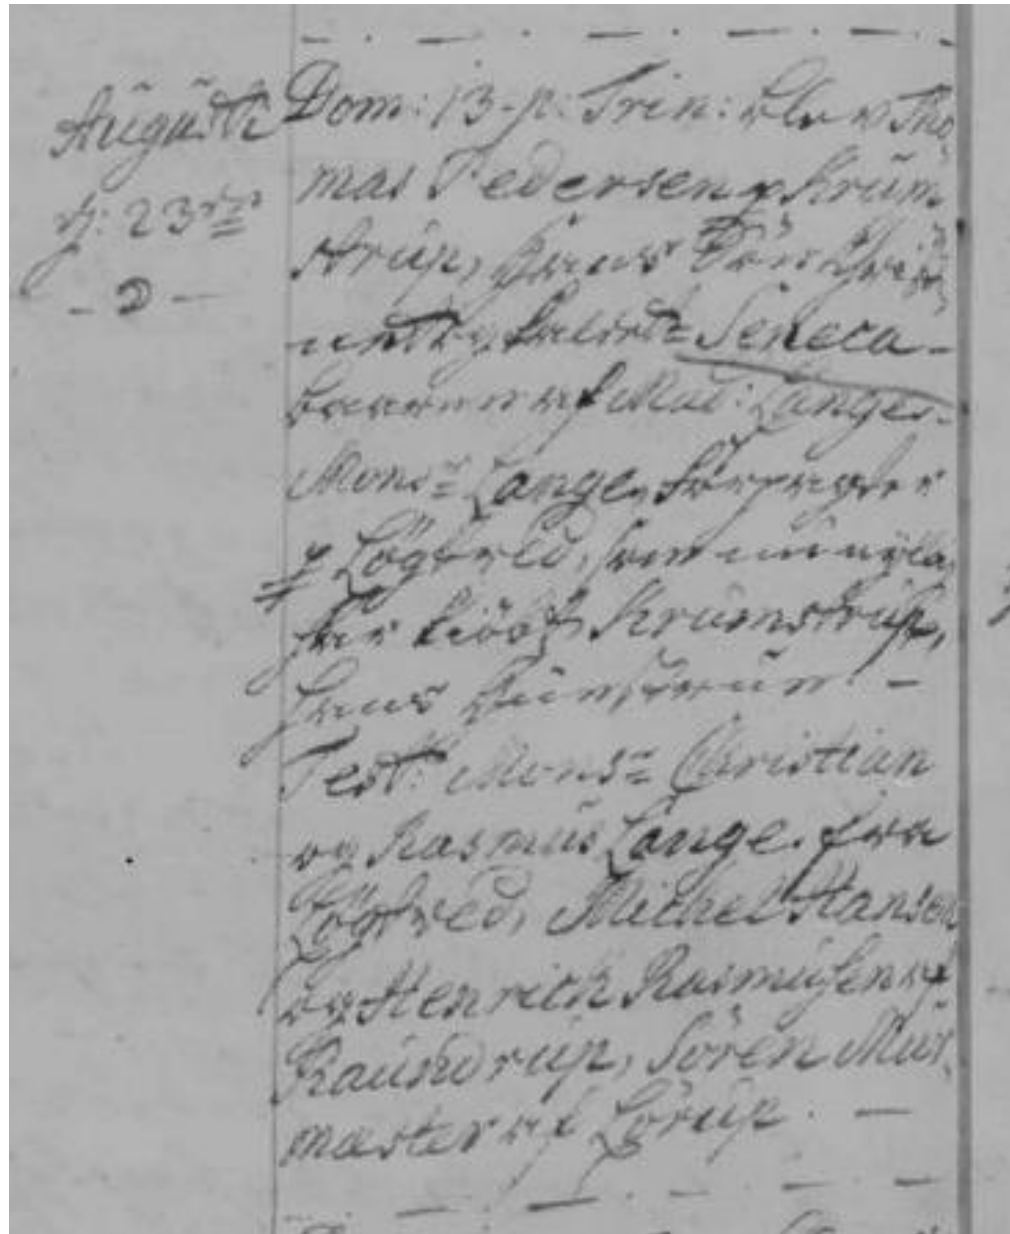 Augusti
d: 23de
- D -
Dom: 13. p: Trin: blev Tho
mas Pedersens i Krum
strup, hans Sön
og kaldet Seneca -
baaren af Mad: Langes.
Monsr Lange, forpagter
på Lögtved, som nu nylig
har kiöbt Krumstrup,
hans
Test: Monsr Christian
og Rasmus Lange. fra
Lögtved, Michel Hansen
og Henrich Rasmusen af
Raundrup, Sören Mur-
mester af Lörup. -